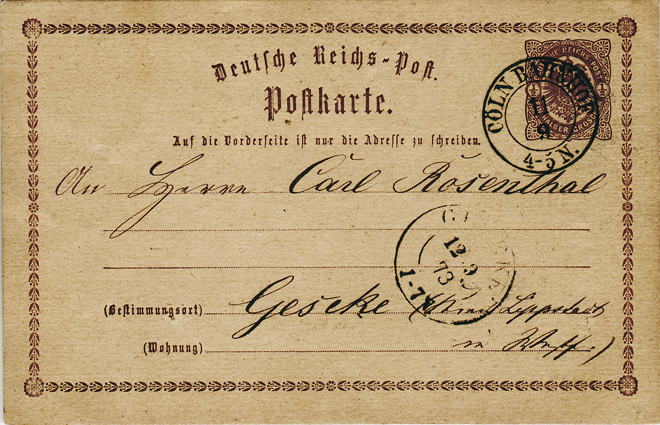 Deutsche Reichs-Post.
Postkarte.
Auf die Vorderseite ist nur die Adresse zu schreiben.
CÖLN BAHNHOF
11
9
4-5 N.
An Herrn Carl Rosenthal
12 9
73
1-7
(Bestimmungsort) Gesecke (Kreis Lippstadt
(Wohnung) in Westf.)